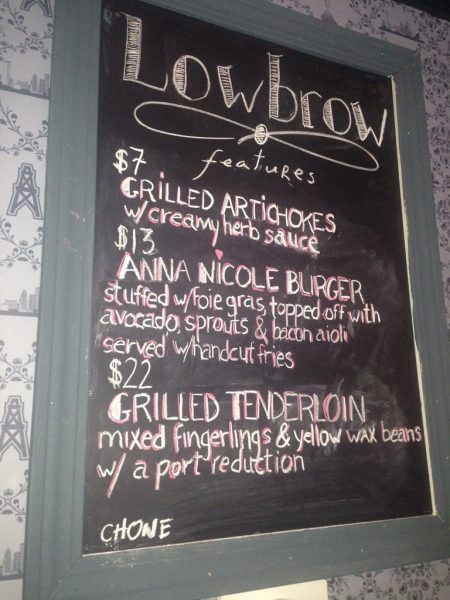 Lowbrow
features
$7
GRiLLED ARTiCHOKES
w/creamy herb sauce
$13
ANNA NiCOLE BURGER
stuffed w/foie gras, topped off with
avocado, sprouts & bacon aioli
served w/handcut fries
$22
GRILLED TENDERLOIN
mixed fingerlings & yellow wax beans
w/ a port reduction
CHONE